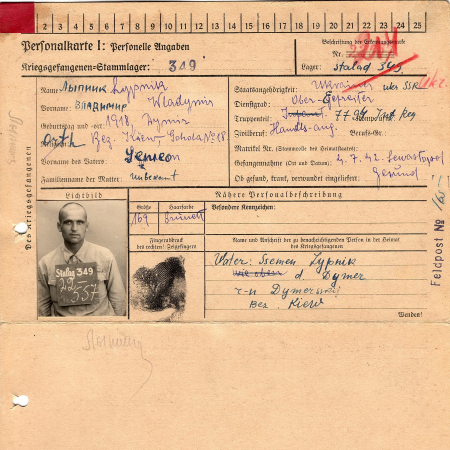 1 2 3 4 5 6 7 8 9 10 11 12 13 14 15 16 17 18 19 20 21 22 23 24 25
Personalkarte I: Personelle Angaben
Kriegsgefangenen-Stammlager: 349
Beschriftung der Erkennungsmarke
Nr.
Lager: Stalag 349
Des Kriegsgefangenen
Name: Лыпник Lypnik
Vorname: Владимир Wladymir
Geburtstag und -ort: 1918, Dymir
Orth. Bez. Kiew,
Vorname des Vaters: Semeon
Familienname der Mutter: unbekannt
Staatsangehörigkeit: Ukrainer USSR Ukr.
Dienstgrad: Ober-Gefreiter
Truppenteil: 779 Inf Reg
Zivilberuf: Berufs-Gr.
Matrikel Nr. (Stammrolle des Heimatstaates):
Gefangennahme (Ort und Datum): 4.7.42. Sewastopol
Ob gesund, krank, verwundet eingeliefert: Gesund
Lichtbild
Stalag 349
Nähere Personalbeschreibung
Größe
Haarfarbe
Besondere Kennzeichen:
169
Brünett
Fingerabdruck
des rechten! Zeigefingers
Name und Anschrift der zu benachrichtigenden Person in der Heimat
des Kriegsgefangenen
Vater: Ssemen Lypnik
wie oben d. Dymer
r-n Dymersky
Bez. Kiew
Wenden!
Feldpost №